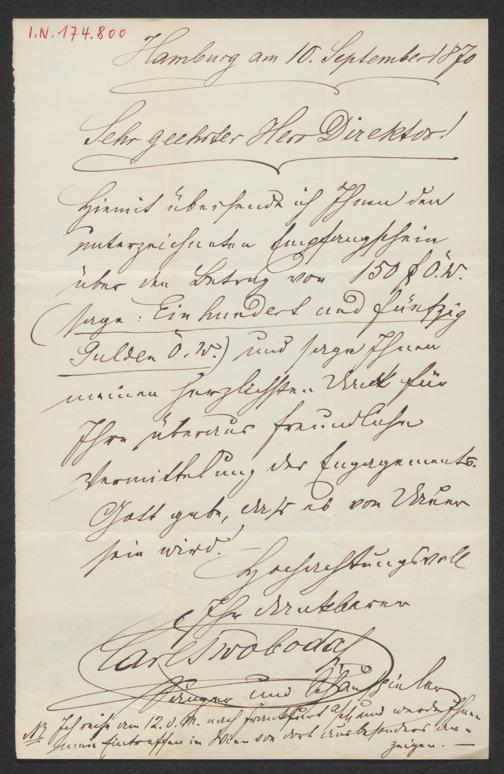 I.N. 174.800
Hamburg am 10. September 1870
Sehr geehrter Herr Direktor!
Hiemit übersende ich Ihnen den
unterzeichneten Empfangschein
über den Betrag von 150 f Ö.W.
(sage: Ein hundert und fünfzig
Gulden Ö.W.) und sage Ihnen
meinen herzlichsten Dank für
Ihre überaus freundliche
Vermittelung des Engagements.
Gott gebe, daß es von Dauer
sein wird! –
Hochachtungsvoll
Ihr dankbarer
Carl Swoboda
Sänger und Schauspieler
NB Ich reise am 12. d. M. nach Frankfurt a/M und werde Ihnen
mein Eintreffen in Wien von dort aus besonders an-
zeigen. —